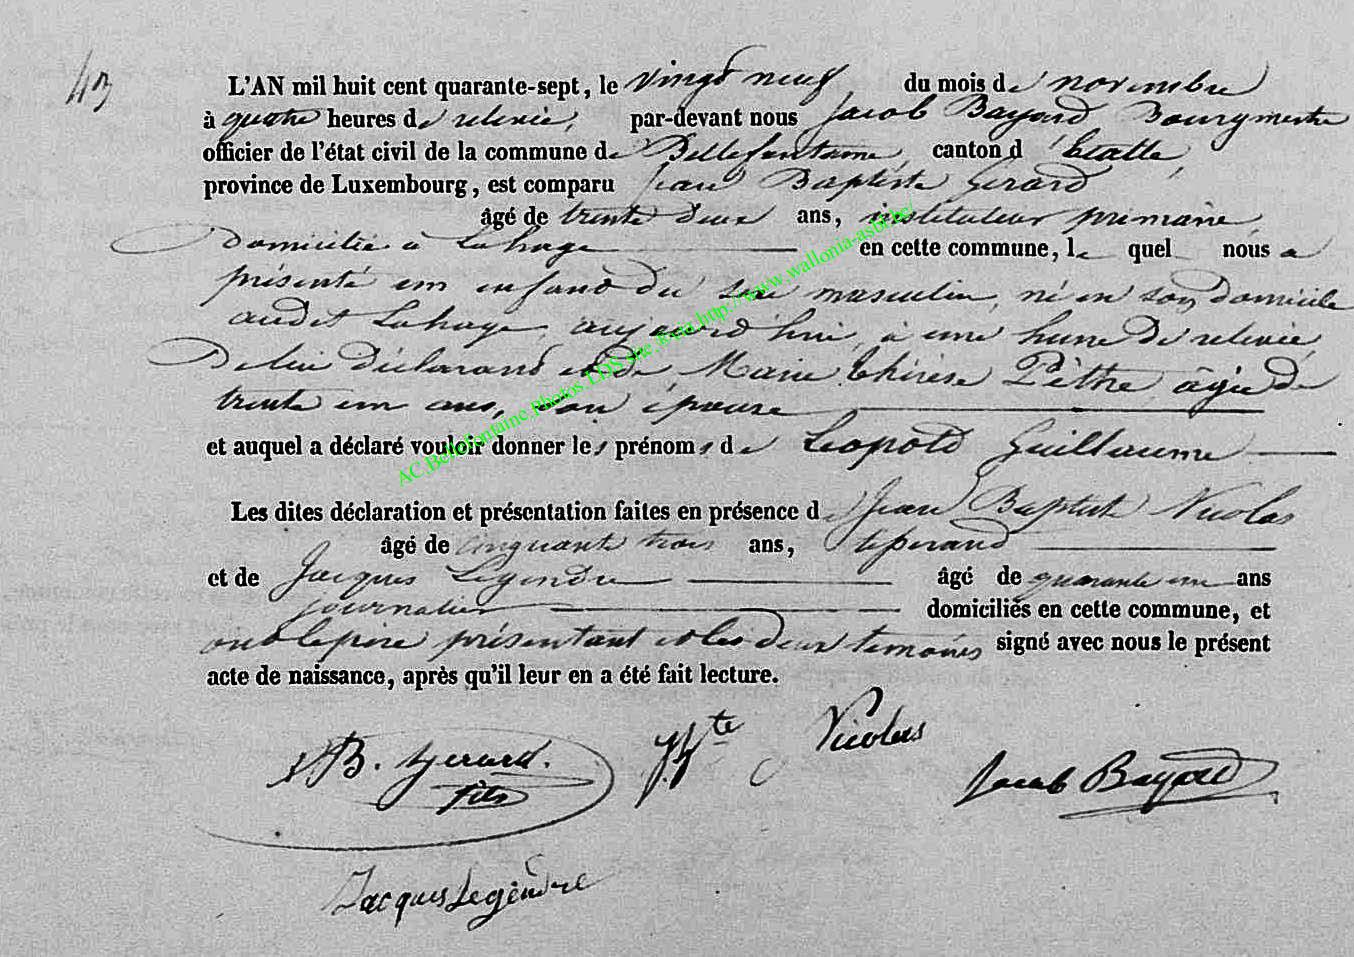 43
L'AN mil huit cent quarante-sept, le vingt neuf du mois de novembre
à quatre heures de relevée, par-devant nous Jacob Bayard Bourgmestre
officier de l'état civil de la commune de Bellefontaine, canton d'Etalle,
province de Luxembourg, est comparu Jean Baptiste Gerard
âgé de trente deux ans, instituteur primaire,
domicilié à Lahage en cette commune, lequel nous a
présenté un enfant du sexe masculin, né en son domicile
audit Lahage, aujourd'hui, à une heure de relevée,
de lui déclarant et de Marie Thérèse Pèthe âgée de
trente un ans, son épouse
et auquel a déclaré vouloir donner les prénoms de Leopold Guillaume
Les dites déclaration et présentation faites en présence de Jean Baptiste Nicolas
âgé de cinquante trois ans,
et de Jacques Legendre âgé de quarante un ans
journalier domiciliés en cette commune, et
ont le père présentant et les deux temoins signé avec nous le présent
acte de naissance, après qu'il leur en a été fait lecture.
JB. Gerard. fils
J Bte Nicolas
Jacob Bayard
Jacques Legendre
AC.Bellefontaine.Photos LDS site http://www.wallonia-asbl.be/